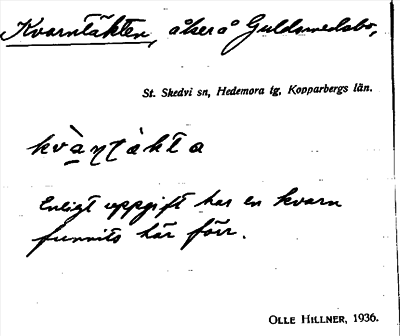 Kvarntäkten, åker å Guldsmedsbo,
St. Skedvi sn, Hedemora tg, Kopparbergs län.
kvàṇtákta
Enligt uppgift har en kvarn
funnits här förr.
OLLE HILLNER, 1936.